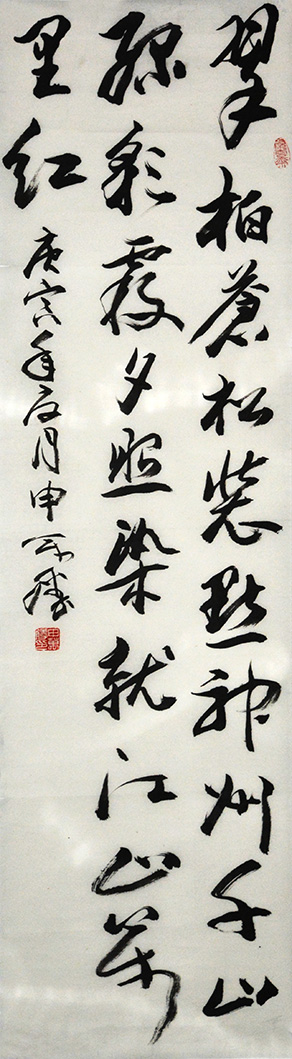 翠柏蒼松裝點神州千山
绿彩霞夕照染就江山萬
里红
庚寅年夏月申万胜